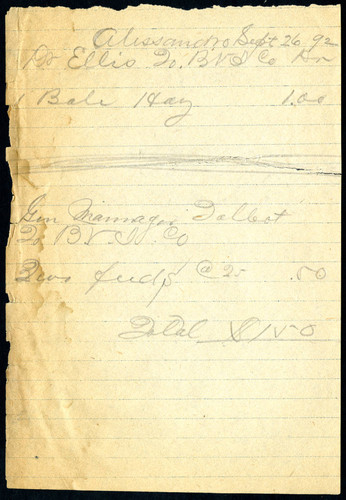 Alessandro Sept 26 92
Dr Ellis To. B V & Co Dr
1 Bale Hay 1.00
Gen Mannager Talbot
To B V. & Co
Two feeds @ 25 .50
Total $150